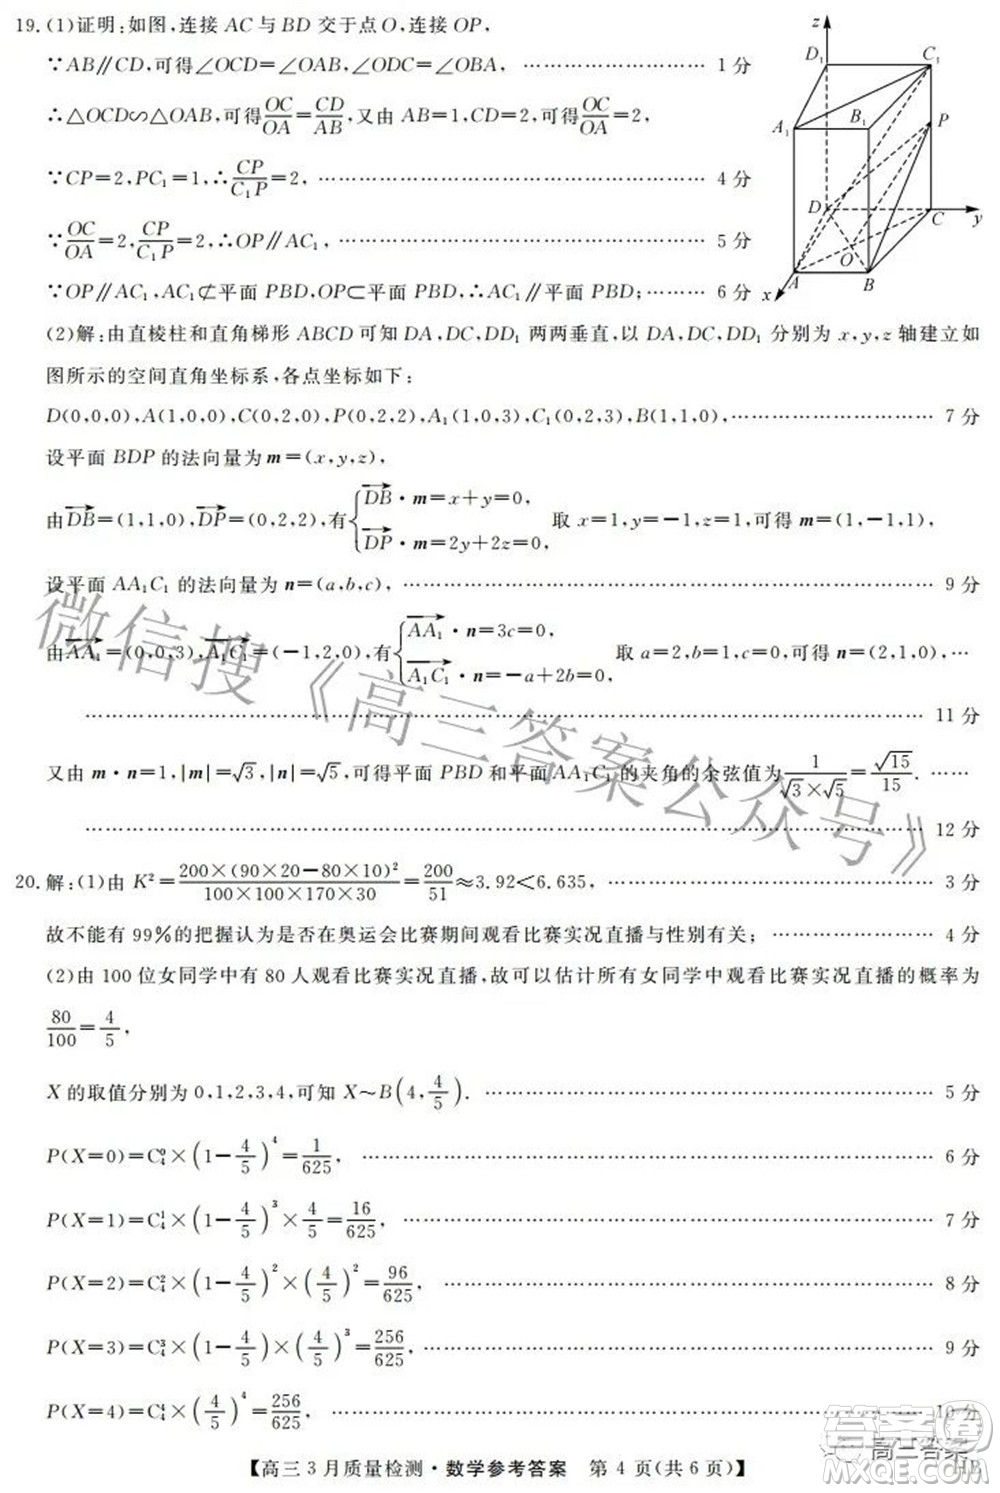 19.(1)证明:如图,连接 AC 与 BD 交于点 O,连接 OP,
∵AB∥CD,可得∠OCD=∠OAB,∠ODC=∠OBA, ………………………… 1 分
∴△OCD∽△OAB,可得OC/OA=CD/AB,又由 AB=1,CD=2,可得OC/OA=2,
∵CP=2,PC₁=1,∴CP/C₁P=2, ………………………… 4 分
∵OC/OA=2,CP/C₁P=2,∴OP∥AC₁, ………………………… 5 分
∵OP∥AC₁,AC₁⊄平面 PBD,OP⊂平面 PBD,∴AC₁∥平面 PBD; ……… 6 分
z
D₁
C₁
A₁
B₁
P
D
C
y
O
A
B
x
(2)解:由直棱柱和直角梯形 ABCD 可知 DA,DC,DD₁ 两两垂直,以 DA,DC,DD₁ 分别为 x,y,z 轴建立如
图所示的空间直角坐标系,各点坐标如下:
D(0,0,0),A(1,0,0),C(0,2,0),P(0,2,2),A₁(1,0,3),C₁(0,2,3),B(1,1,0), ………………………… 7 分
设平面 BDP 的法向量为 m=(x,y,z),
由DB→=(1,1,0),DP→=(0,2,2),有{DB→·m=x+y=0, DP→·m=2y+2z=0, 取 x=1,y=-1,z=1,可得 m=(1,-1,1),
设平面 AA₁C₁ 的法向量为 n=(a,b,c), ………………………… 9 分
由AA₁→=(0,0,3),A₁C₁→=(-1,2,0),有{AA₁→·n=3c=0, A₁C₁→·n=-a+2b=0, 取 a=2,b=1,c=0,可得 n=(2,1,0), …
………………………… 11 分
又由 m·n=1,|m|=√3,|n|=√5,可得平面 PBD 和平面 AA₁C₁ 的夹角的余弦值为1/(√3×√5)=√15/15. ……
………………………… 12 分
20.解:(1)由 K²=200×(90×20-80×10)²/(100×100×170×30)=200/51≈3.92<6.635, ………………………… 3 分
故不能有 99%的把握认为是否在奥运会比赛期间观看比赛实况直播与性别有关; ………………………… 4 分
(2)由 100 位女同学中有 80 人观看比赛实况直播,故可以估计所有女同学中观看比赛实况直播的概率为
80/100=4/5,
X 的取值分别为 0,1,2,3,4,可知 X~B(4,4/5). ………………………… 5 分
P(X=0)=C₄⁰×(1-4/5)⁴=1/625, ………………………… 6 分
P(X=1)=C₄¹×(1-4/5)³×4/5=16/625, ………………………… 7 分
P(X=2)=C₄²×(1-4/5)²×(4/5)²=96/625, ………………………… 8 分
P(X=3)=C₄³×(1-4/5)×(4/5)³=256/625, ………………………… 9 分
P(X=4)=C₄⁴×(4/5)⁴=256/625, ………………………… 10 分
【高三 3 月质量检测·数学参考答案 第 4 页(共 6 页)】
HB
微信搜《高三答案公众号》
高三答案
答案圈